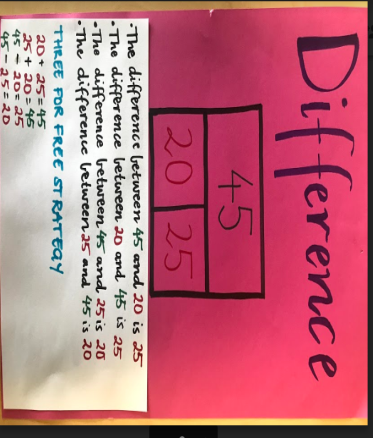 Difference
45
20 25
• The difference between 45 and 20 is 25
• The difference between 20 and 45 is 25
• The difference between 45 and 25 is 20
• The difference between 25 and 45 is 20
THREE FOR FREE STRATEGY
20 + 25 = 45
25 + 20 = 45
45 - 20 = 25
45 - 25 = 20